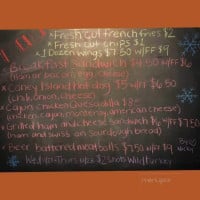 *Fresh cut french fries $2
*Fresh cut chips $2
*1 Dozen wings $7.50 w/FF $9
*Breakfast Sandwich $4.50 w/FF $6
(Ham or bacon, egg, cheese)
*Coney Island Hot dog $5 w/FF $6.50
(chili, onion, cheese)
*Cajun Chicken Quesadilla $8
(chicken, cajun, monterey, american cheese)
*Grilled ham and cheese Sandwich $6 w/FF $7.50
(ham and swiss on sourdough bread)
*Beer battered meatballs $7.50 w/FF $9
Wed. Thurs $2 Shots Wild turkey